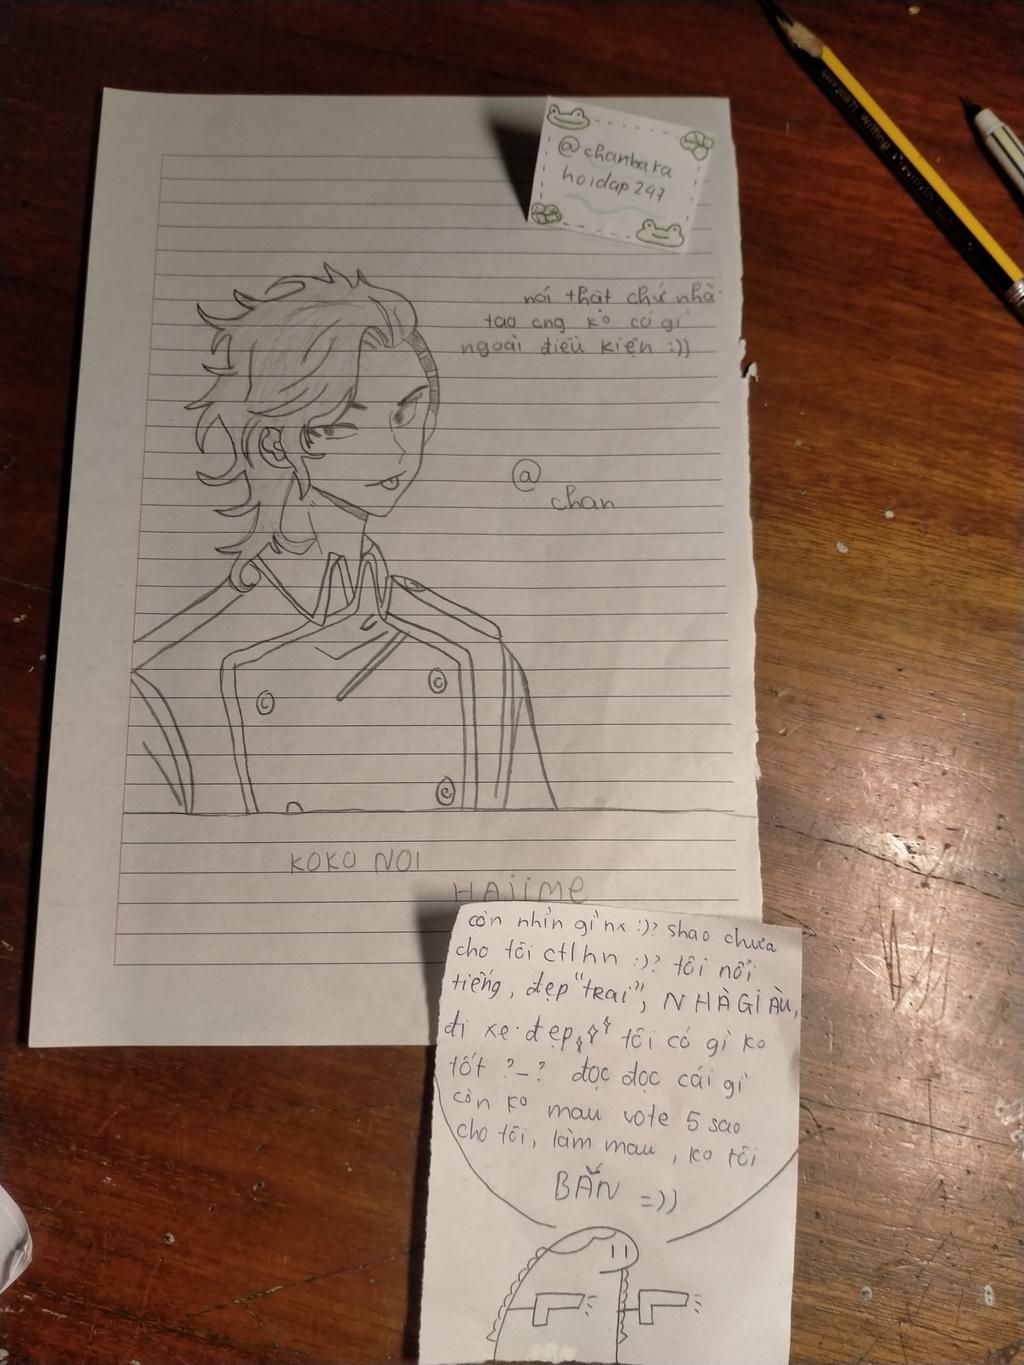 @chanbaka
hoidap247
nói thật chứ nhà
tao cng ko có gì
ngoài điều kiện :))
@
chan
KOKO NOI
HAjiME
còn nhìn gì nx :)? shao chưa
cho tôi ctlhn :)? tôi nổi
tiếng, đẹp "tRai", NHÀ GIÀU,
đi xe đẹp, tôi có gì ko
tốt ?-? đọc đọc cái gì
còn ko mau vote 5 sao
cho tôi, làm mau, ko tôi
BẮN =))